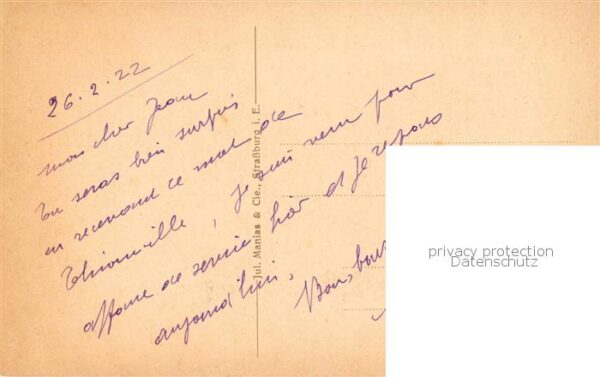 26.2.22
mon cher Jean
Tu seras bien surpris
en recevant ce mot de
Thionville, je suis venu pour
affaire de service hier et je repars
aujourd'hui,
Jul. Manias & Cie., Straßburg i. E.
privacy protection
Datenschutz